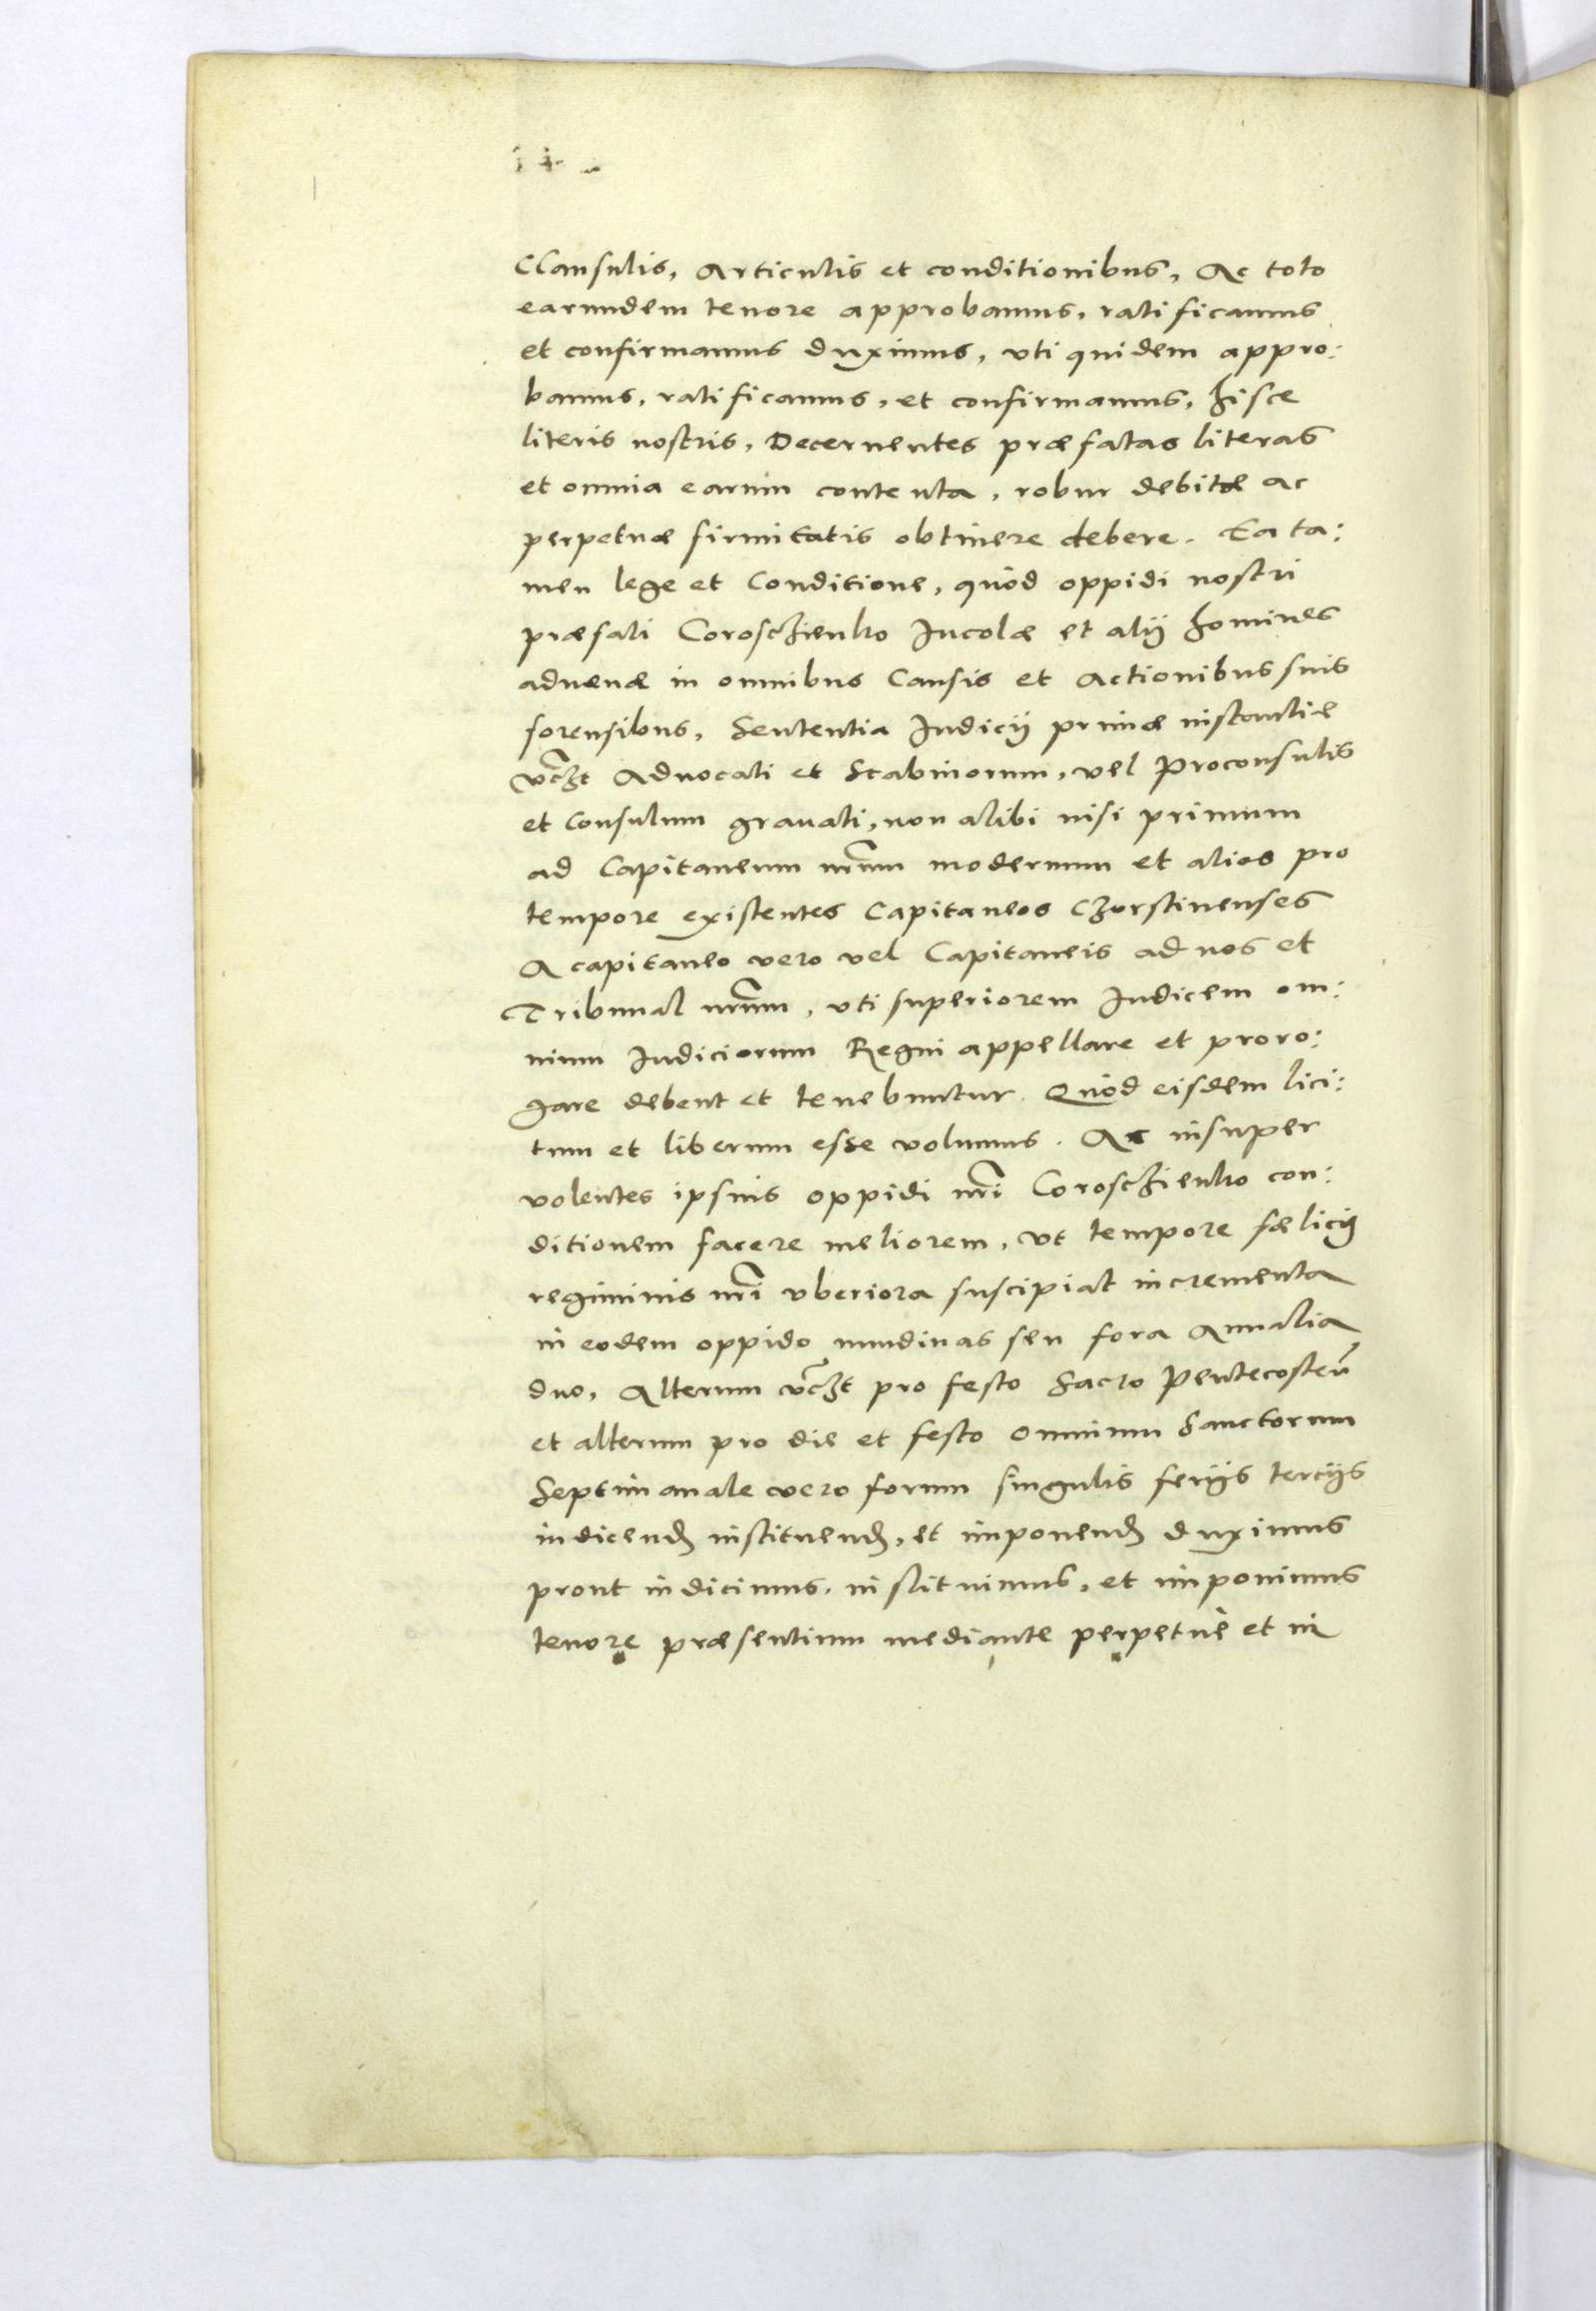 Clausulis, Articulis et conditionibus, Ac toto
earundem tenore approbamus, ratificamus
et confirmamus duximus, vti quidem appro:
bamus, ratificamus, et confirmamus, hisce
literis nostris, Decernentes præfatas literas
et omnia earum contenta, robur debitæ ac
perpetuæ firmitatis obtinere debere. Ea ta:
men lege et Conditione, quòd oppidi nostri
præfati Coroschienko Incolæ et alij homines
aduenæ in omnibus Causis et Actionibus suis
forensibus, Sententia Iudicij primæ instantiæ
vczt Aduocati et Scabinorum, vel Proconsulis
et Consulum grauati, non alibi nisi primum
ad Capitaneum nrum modernum et alios pro
tempore existentes Capitaneos Czorstinenses
A capitaneo vero vel Capitaneis ad nos et
Tribunal nrum, vti superiorem Iudicem om:
nium Iudiciorum Regni appellare et proro:
gare debent et tenebuntur. Quòd eisdem lici:
tum et liberum esse volumus. Ac insuper
volentes ipsius oppidi nri Coroschienko con:
ditionem facere meliorem, vt tempore fælicis
regiminis nri vberiora suscipiat incrementa
in eodem oppido nundinas seu fora Annalia
duo, Alterum vczt pro festo Sacro Pentecosten
et alterum pro die et festo Omnium Sanctorum
Septimanale vero forum singulis ferijs tercijs
indicend instituend, et imponend duximus
prout indicimus, instituimus, et imponimus
tenore præsentium mediante perpetuè et in